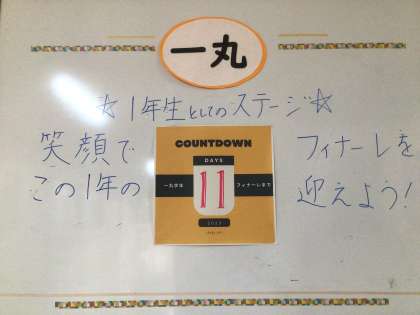 一丸
☆1年生としてのステージ☆
笑顔で
この1年の
フィナーレを
迎えよう!
COUNTDOWN
DAYS
一丸学年
11
フィナーレまで